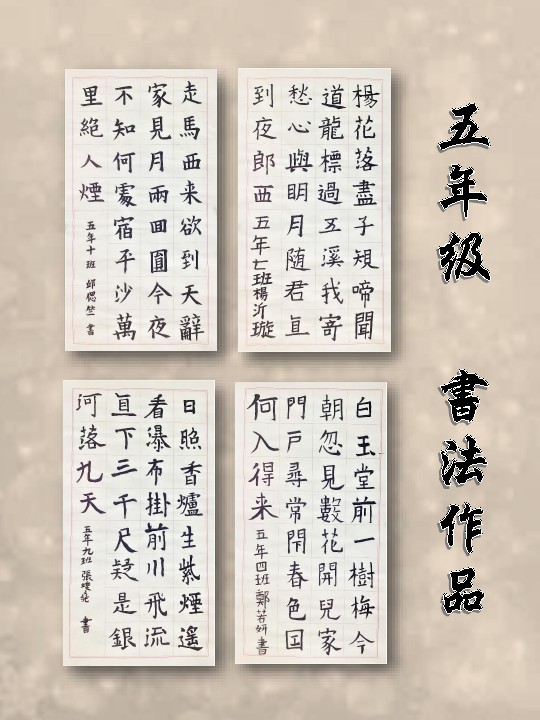 五年級 書法作品
楊花落盡子規啼聞
道龍標過五溪我寄
愁心與明月随君直
到夜郎西 五年七班楊沂璇
走馬西来欲到天辭
家見月兩回圓今夜
不知何處宿平沙萬
里絕人煙 五年十班 邱偲竺 書
白玉堂前一樹梅今
朝忽見數花開兒家
門戶尋常閉春色因
何入得来 五年四班鄭若妍書
日照香爐生紫煙遙
看瀑布掛前川飛流
直下三千尺疑是銀
河落九天 五年九班 張 書